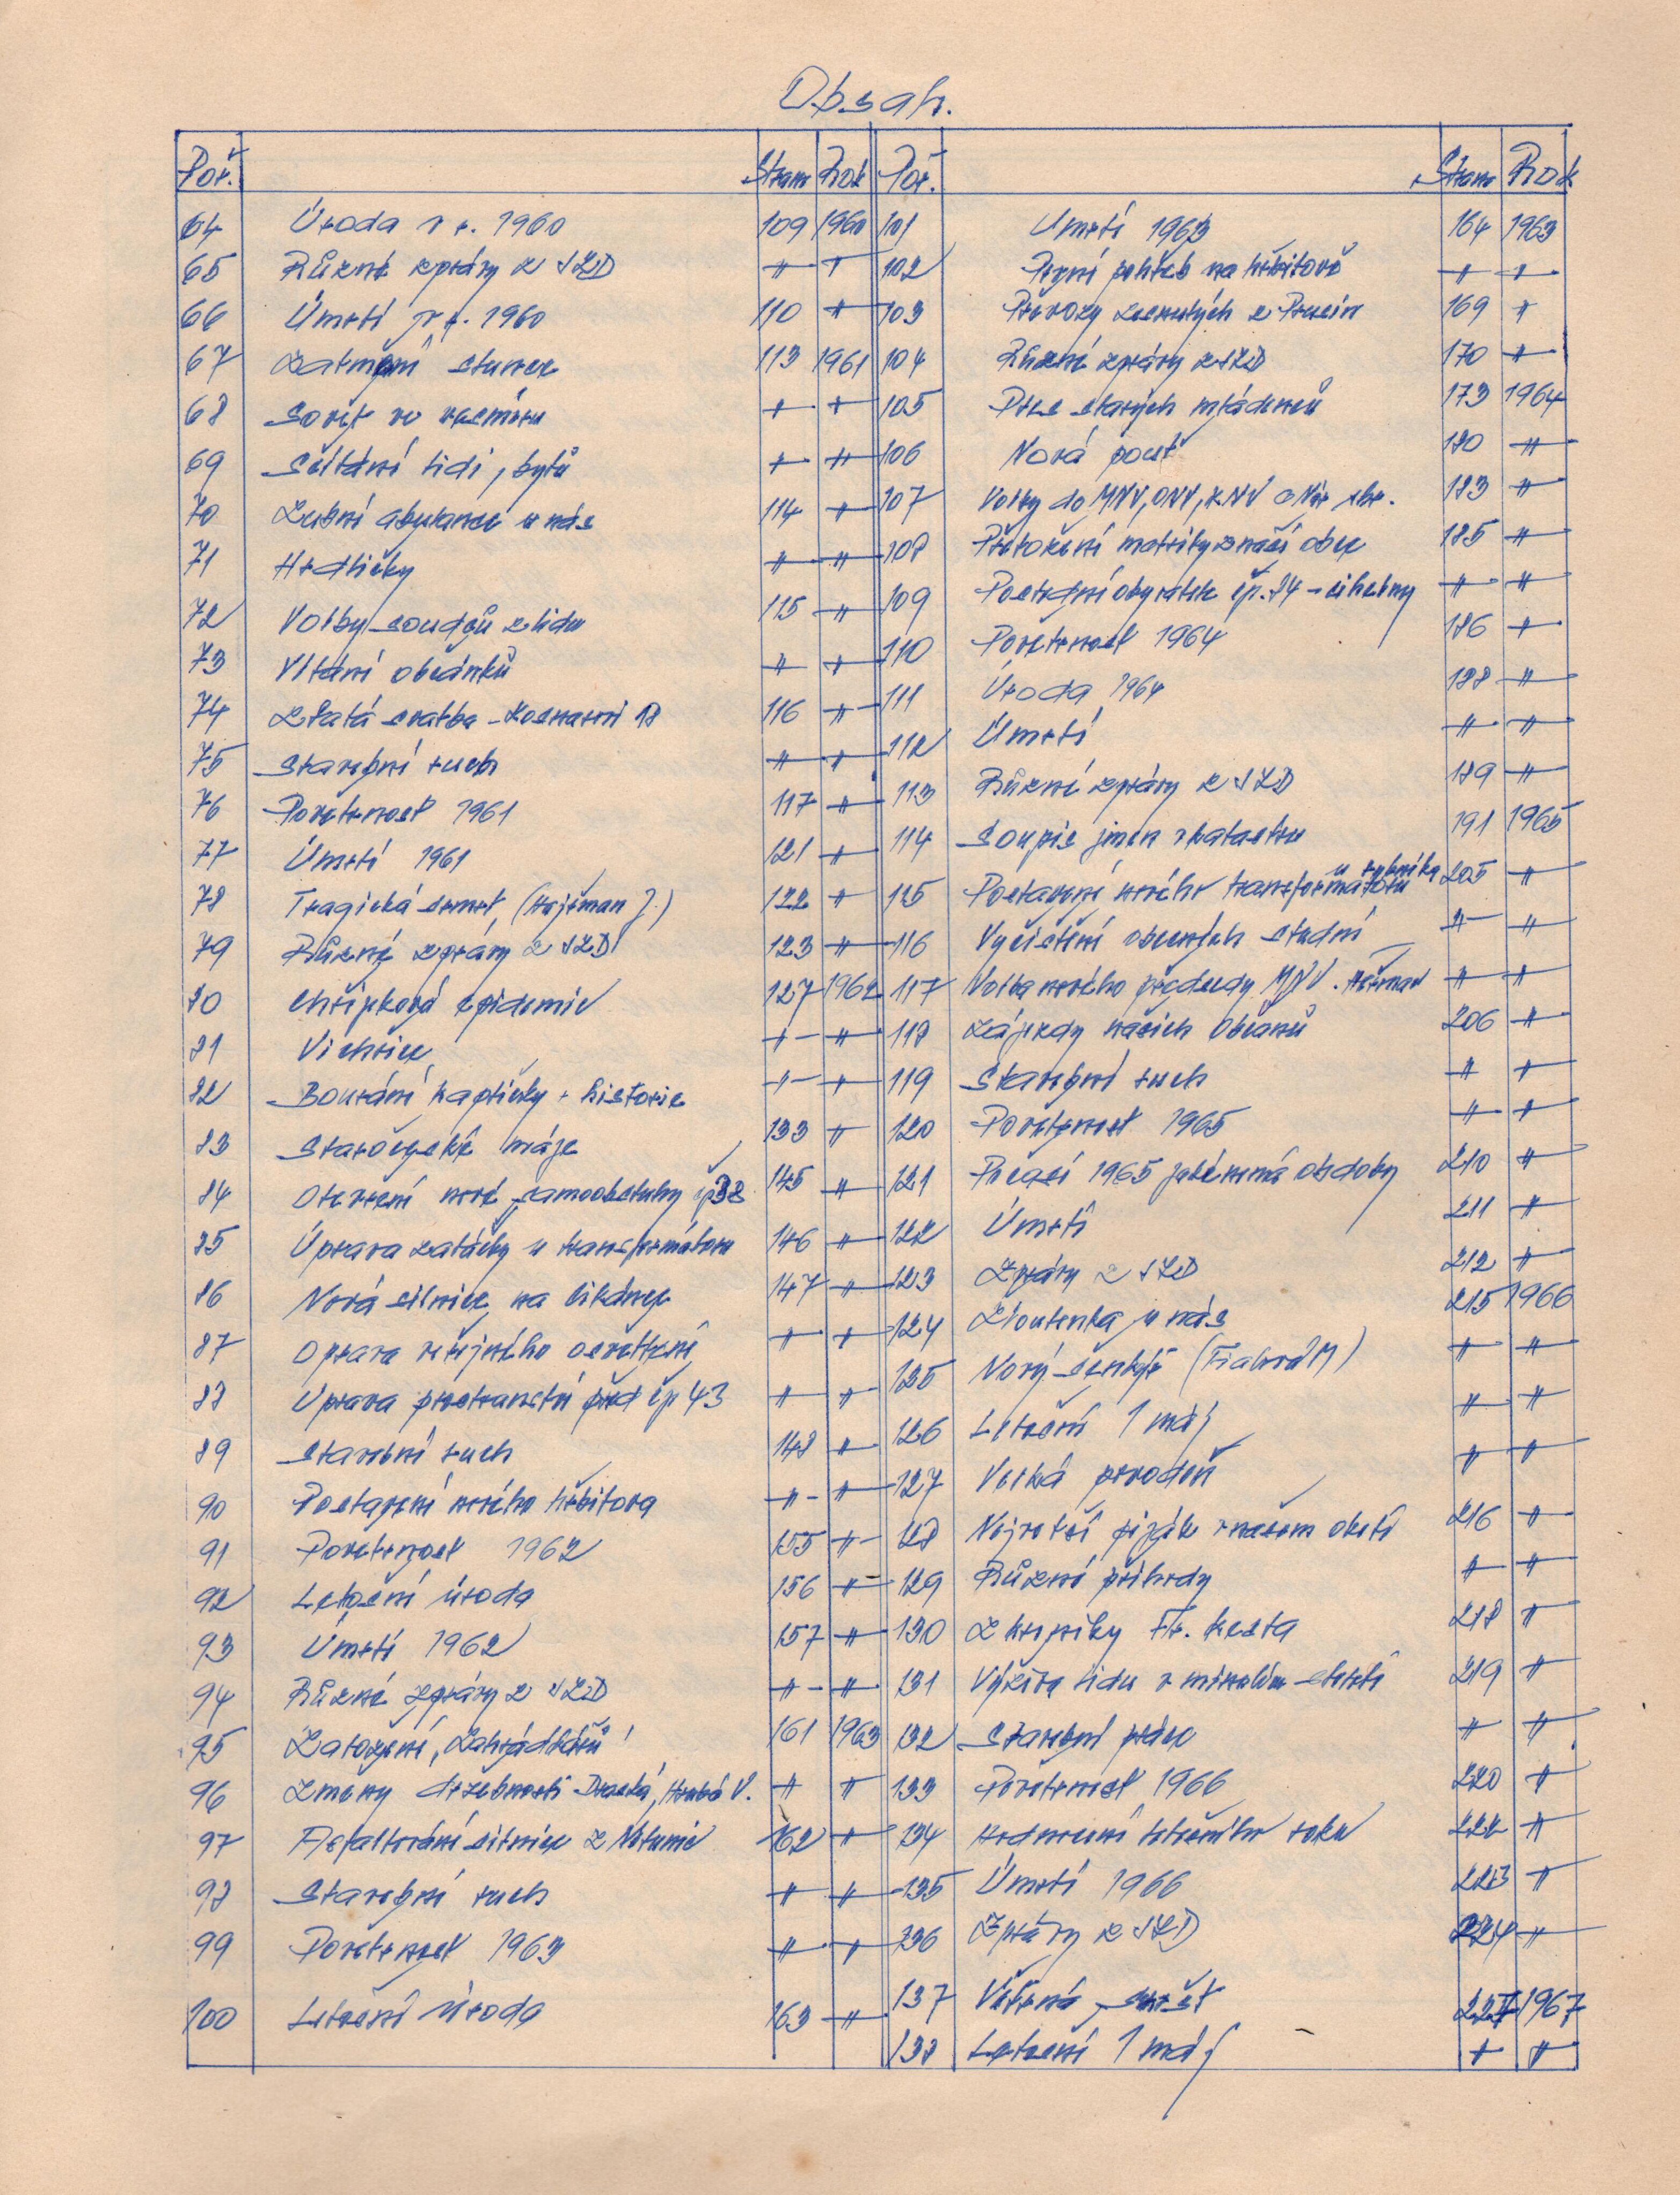 Obsah.
Poř. Stran Rok Poř. Stran Rok
64 Úroda v r. 1960 109 1960
65 Různé zprávy z JZD " "
66 Úmrtí v r. 1960 110 "
67 Zatmění slunce 113 1961
68 Sovět ve vesmíru " "
69 Sčítání lidí, bytů " "
70 Zubní abulance u nás 114 "
71 Hrdličky " "
72 Volby soudců z lidu 115 "
73 Vítání občánků " "
74 Zlatá svatba - 18 116 "
75 Stavební ruch " "
76 Povětrnost 1961 117 "
77 Úmrtí 1961 121 "
78 Tragická smrt (Hejtman J.) 122 "
79 Různé zprávy z JZD 123 "
80 Chřipková epidemie 127 1962
81 Vichřice " "
82 Bourání kapličky + historie " "
83 Staročeské máje 133 "
84 Otevření nové samoobsluhy čp 38 145 "
85 Úprava zatáčky u transformátoru 146 "
86 Nová silnice na 147 "
87 Oprava veřejného osvětlení " "
88 Úprava prostranství před čp 43 " "
89 Stavební ruch 148 "
90 Postavení nového hřbitova " "
91 Povětrnost 1962 155 "
92 Letošní úroda 156 "
93 Úmrtí 1962 157 "
94 Různé zprávy z JZD " "
95 Založení, Zahrádkářů 161 1963
96 Změny držebnosti , Hrubá V. " "
97 Asfaltování silnice z Netunic 162 "
98 Stavební ruch " "
99 Povětrnost 1963 " "
100 Letošní úroda 163 "
101 Úmrtí 1963 164 1963
102 První pohřeb na hřbitově " "
103 Převozy zesnulých z Prusin 169 "
104 Různé zprávy z JZD 170 "
105 Ples starých mládenců 173 1964
106 Nová pouť 180 "
107 Volby do MNV, ONV, KNV a Nár. shr. 183 "
108 Přeložení matriky z naší obce 185 "
109 Poslední obyvatel čp. 24 - cihelny " "
110 Povětrnost 1964 186 "
111 Úroda 1964 188 "
112 Úmrtí " "
113 Různé zprávy z JZD 189 "
114 Soupis jmen v katastru 191 1965
115 Postavení nového transformátoru u rybníka 205 "
116 Vyčistění obecních studní " "
117 Volba nového předsedy MNV. " "
118 Zájezdy našich občanů 206 "
119 Stavební ruch " "
120 Povětrnost 1965 " "
121 Počasí 1965 jak nemá obdoby 210 "
122 Úmrtí 211 "
123 Zprávy z JZD 212 "
124 Žloutenka u nás 215 1966
125 Nový (Fialová M) " "
126 Letošní 1 máj " "
127 Velká povodeň " "
128 Největší v našem okolí 216 "
129 Různé příhody " "
130 Z kroniky Fr. 218 "
131 Výživa lidu v minulém století 219 "
132 Stavební práce " "
133 Povětrnost 1966 220 "
134 Hodnocení letošního roku 222 "
135 Úmrtí 1966 223 "
136 Zprávy z JZD 224 "
137 Větrná smršť 227 1967
138 Letošní 1 máj " "